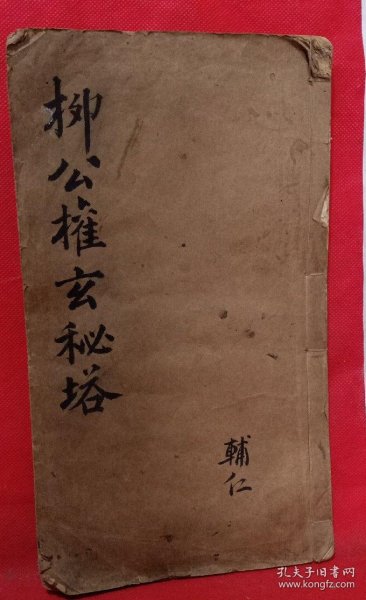 柳公權玄秘塔
輔仁
孔夫子旧书网
www.kongfz.com